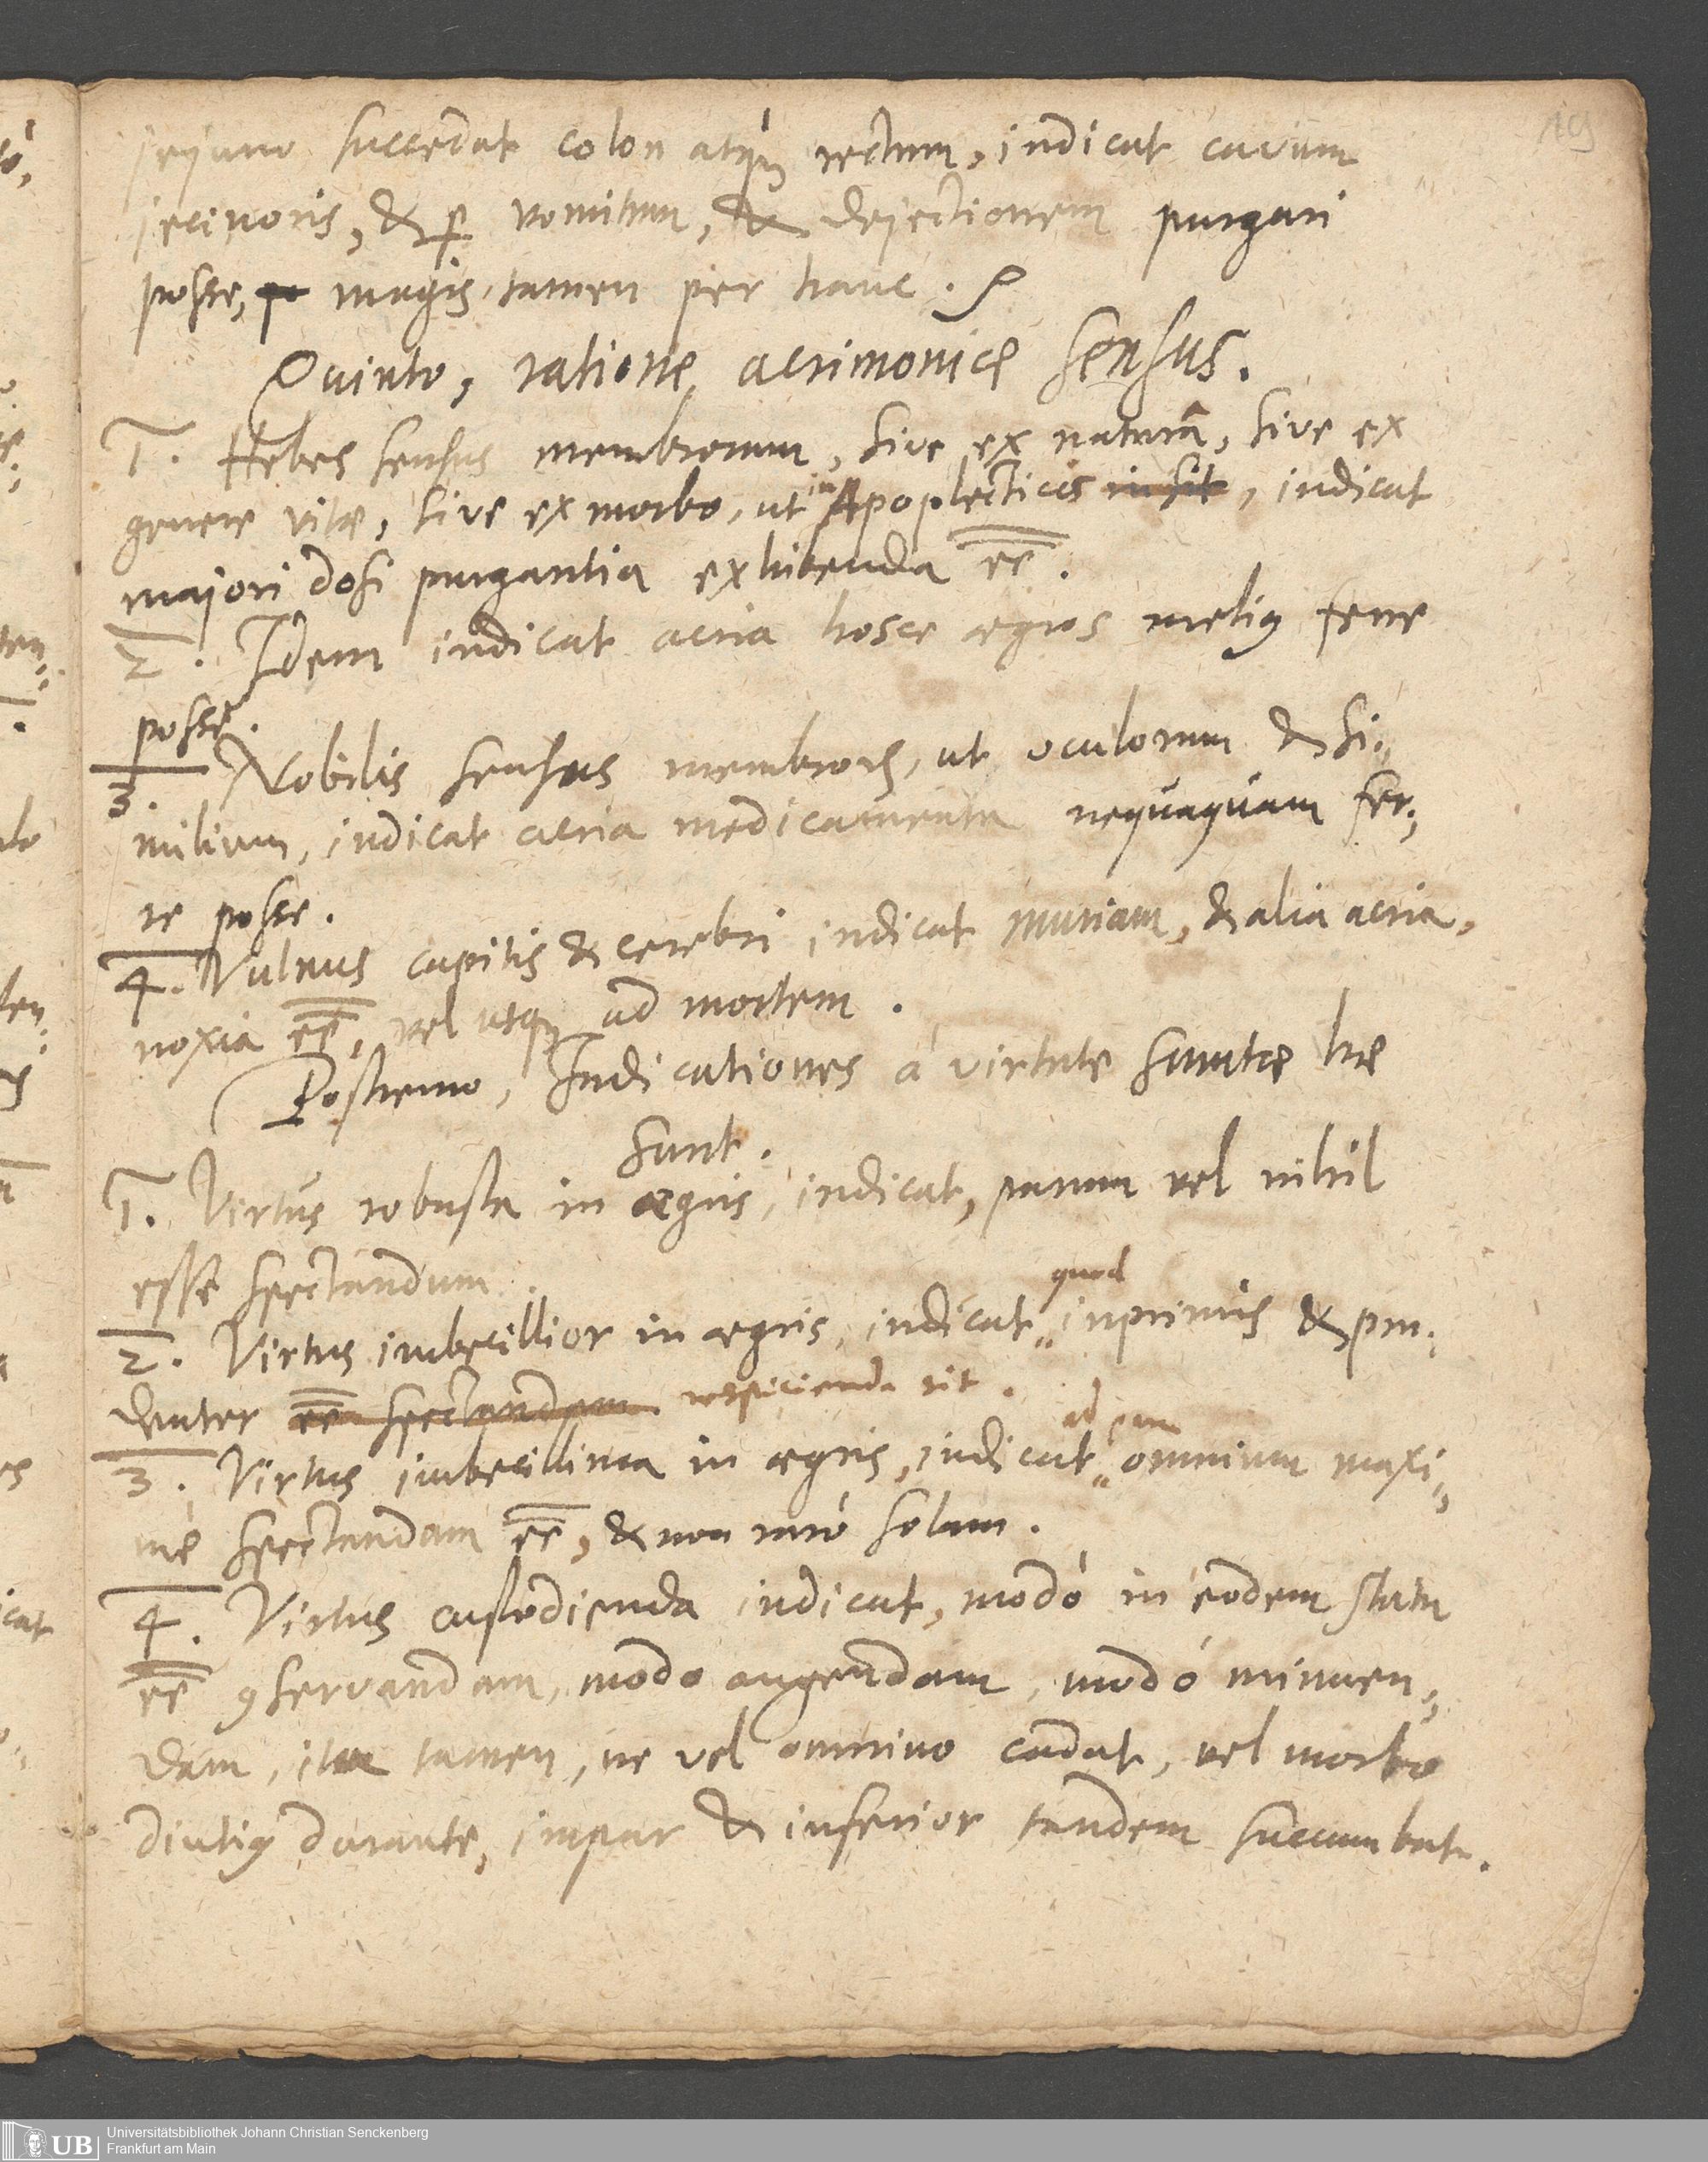 jejuno succedat colon atq́; rectum, indicat cavum
jecinoris, & p̱ vomitum, & dejectionem purgari
posse, magis tamen per hanc.
Quinto, ratione acrimoniæ sensus.
1. Hebes sensus membrorum, sive ex naturâ, sive ex
genere vitæ, sive ex morbo, ut in Apoplecticis insit, indicat
majori dosi purgantia exhibenda ee̅.
2. Idem indicat acria hosce ægros meliꝰ ferre
posse.
3. Nobilis sensus membroꝝ, ut oculorum & si⸗
milium, indicat acria medicamenta nequaquam fer⸗
re posse.
4. Vulnus capitis & cerebri indicat muriam, & alia acria,
noxia ee̅, vel usq; ad mortem.
Postremo, Indicationes à virtute sumtæ hæ
sunt.
1. Virtus robusta in ægris, indicat, parum vel nihil
esse spectandum.
2. Virtus imbecillior in ægris, indicat quod inprimis & pru⸗
denter ee̅ spectandam respicienda sit.
3. Virtus imbecillima in ægris, indicat ad eam omnium maxi⸗
mè spectandam ee̅, & non rarò solam.
4. Virtus custodienda indicat, modò in eodem statu
ee̅ ꝯservandam, modo augendam, modò minuen⸗
dam, ita tamen, ne vel omnino cadat, vel morbo
diutiꝰ durante, impar & inferior tandem succumbat.
Universitätsbibliothek Johann Christian Senckenberg
Frankfurt am Main
UB